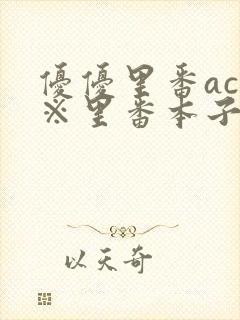 優優里番ac
※里番本子
以天奇